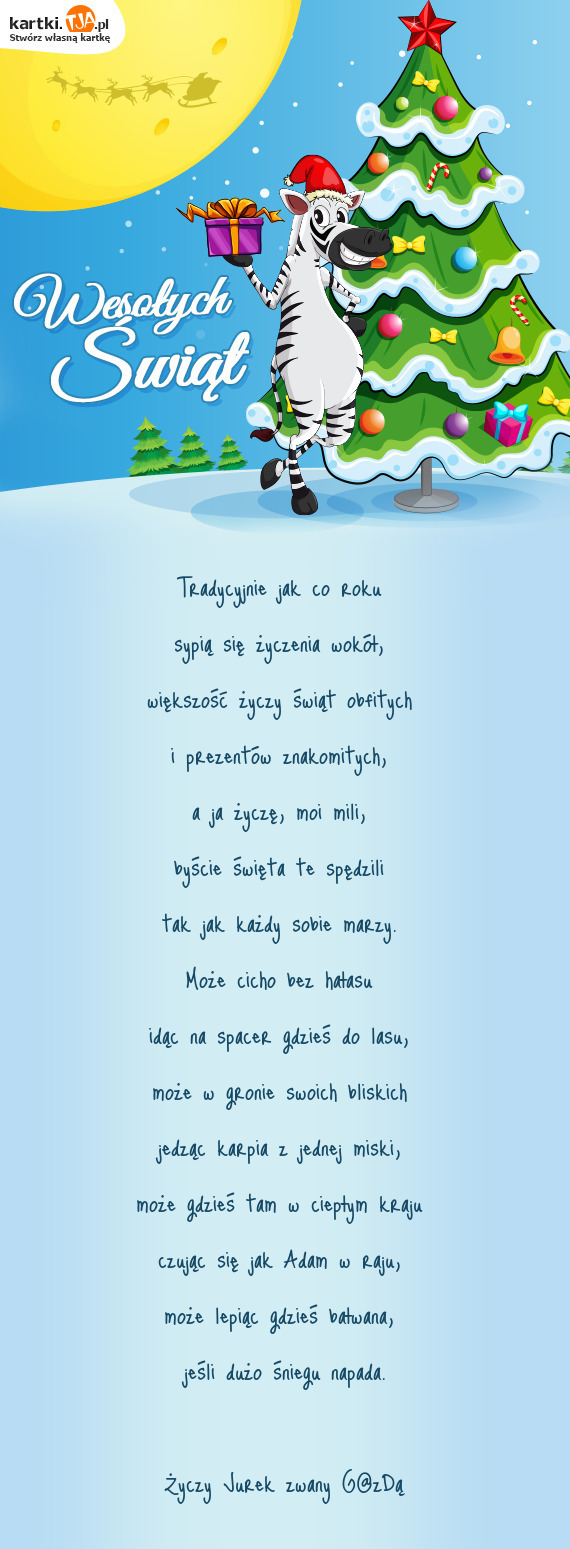 kartki.TJA.pl
Stwórz własną kartkę
Wesołych
Świąt
Tradycyjnie jak co roku
sypią się życzenia wokół,
większość życzy świąt obfitych
i prezentów znakomitych,
a ja życzę, moi mili,
byście święta te spędzili
tak jak każdy sobie marzy.
Może cicho bez hałasu
idąc na spacer gdzieś do lasu,
może w gronie swoich bliskich
jedząc karpia z jednej miski,
może gdzieś tam w ciepłym kraju
czując się jak Adam w raju,
może lepiąc gdzieś bałwana,
jeśli dużo śniegu napada.
Życzy Jurek zwany G@zDą